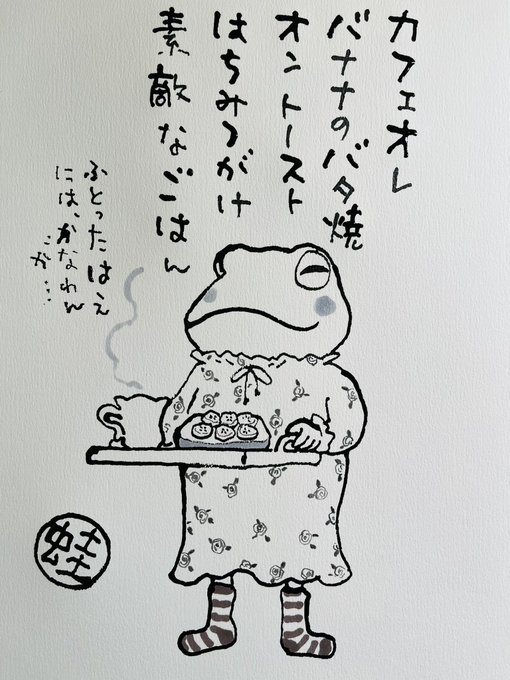 カフェオレ
バナナのバタ焼
オントースト
はちみつがけ
素敵なごはん
ふとったはえ
には、かなわん
が…
蛙